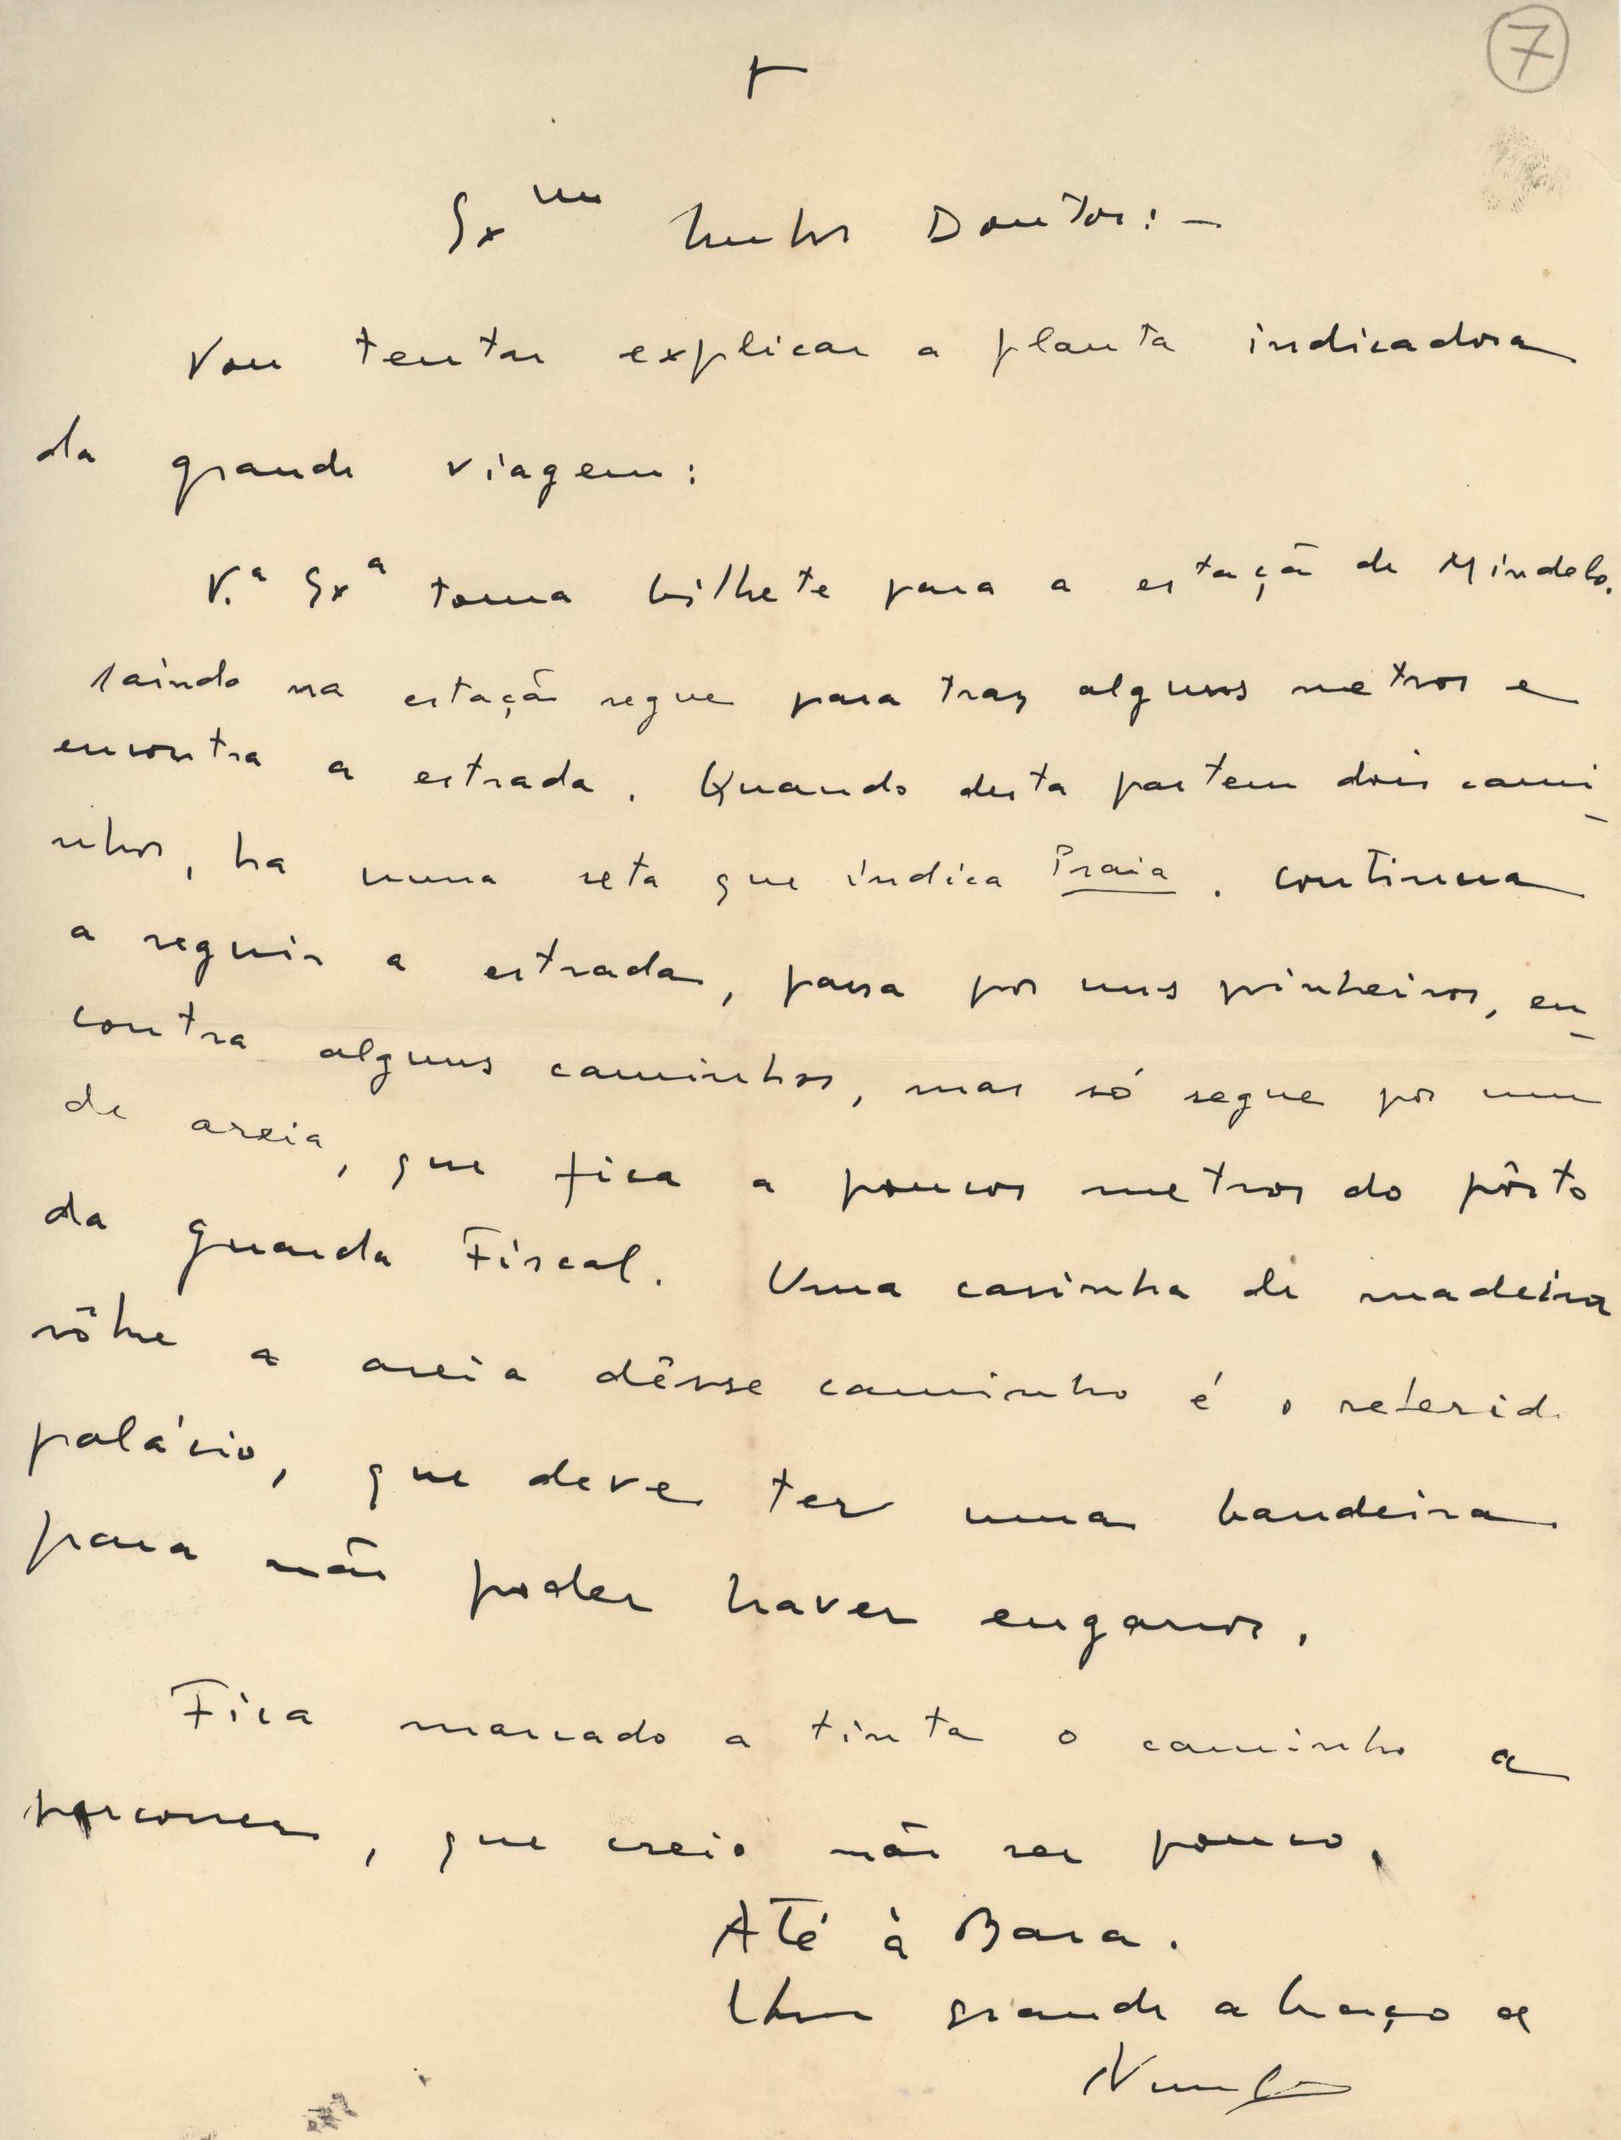 7
+
Exmo Senhor Doutor: -
Vou tentar explicar a planta indicadora
da grande viagem:
V.ª Exª toma bilhete para a estação de Mindelo.
Saindo na estação segue para traz alguns metros e
encontra a estrada. Quando desta partem dois cami-
nhos, ha numa seta que indica Praia. Continua
a seguir a estrada, passa por uns pinheiros, en-
contra alguns caminhos, mas só segue por um
de areia, que fica a poucos metros do pôsto
da Guarda Fiscal. Uma casinha de madeira
sôbre a areia dêsse caminho é o referido
palácio, que deve ter uma bandeira
para não poder haver enganos.
Fica marcado a tinta o caminho a
percorrer, que creio não ser pouco.
Até à Barra.
Um grande abraço de